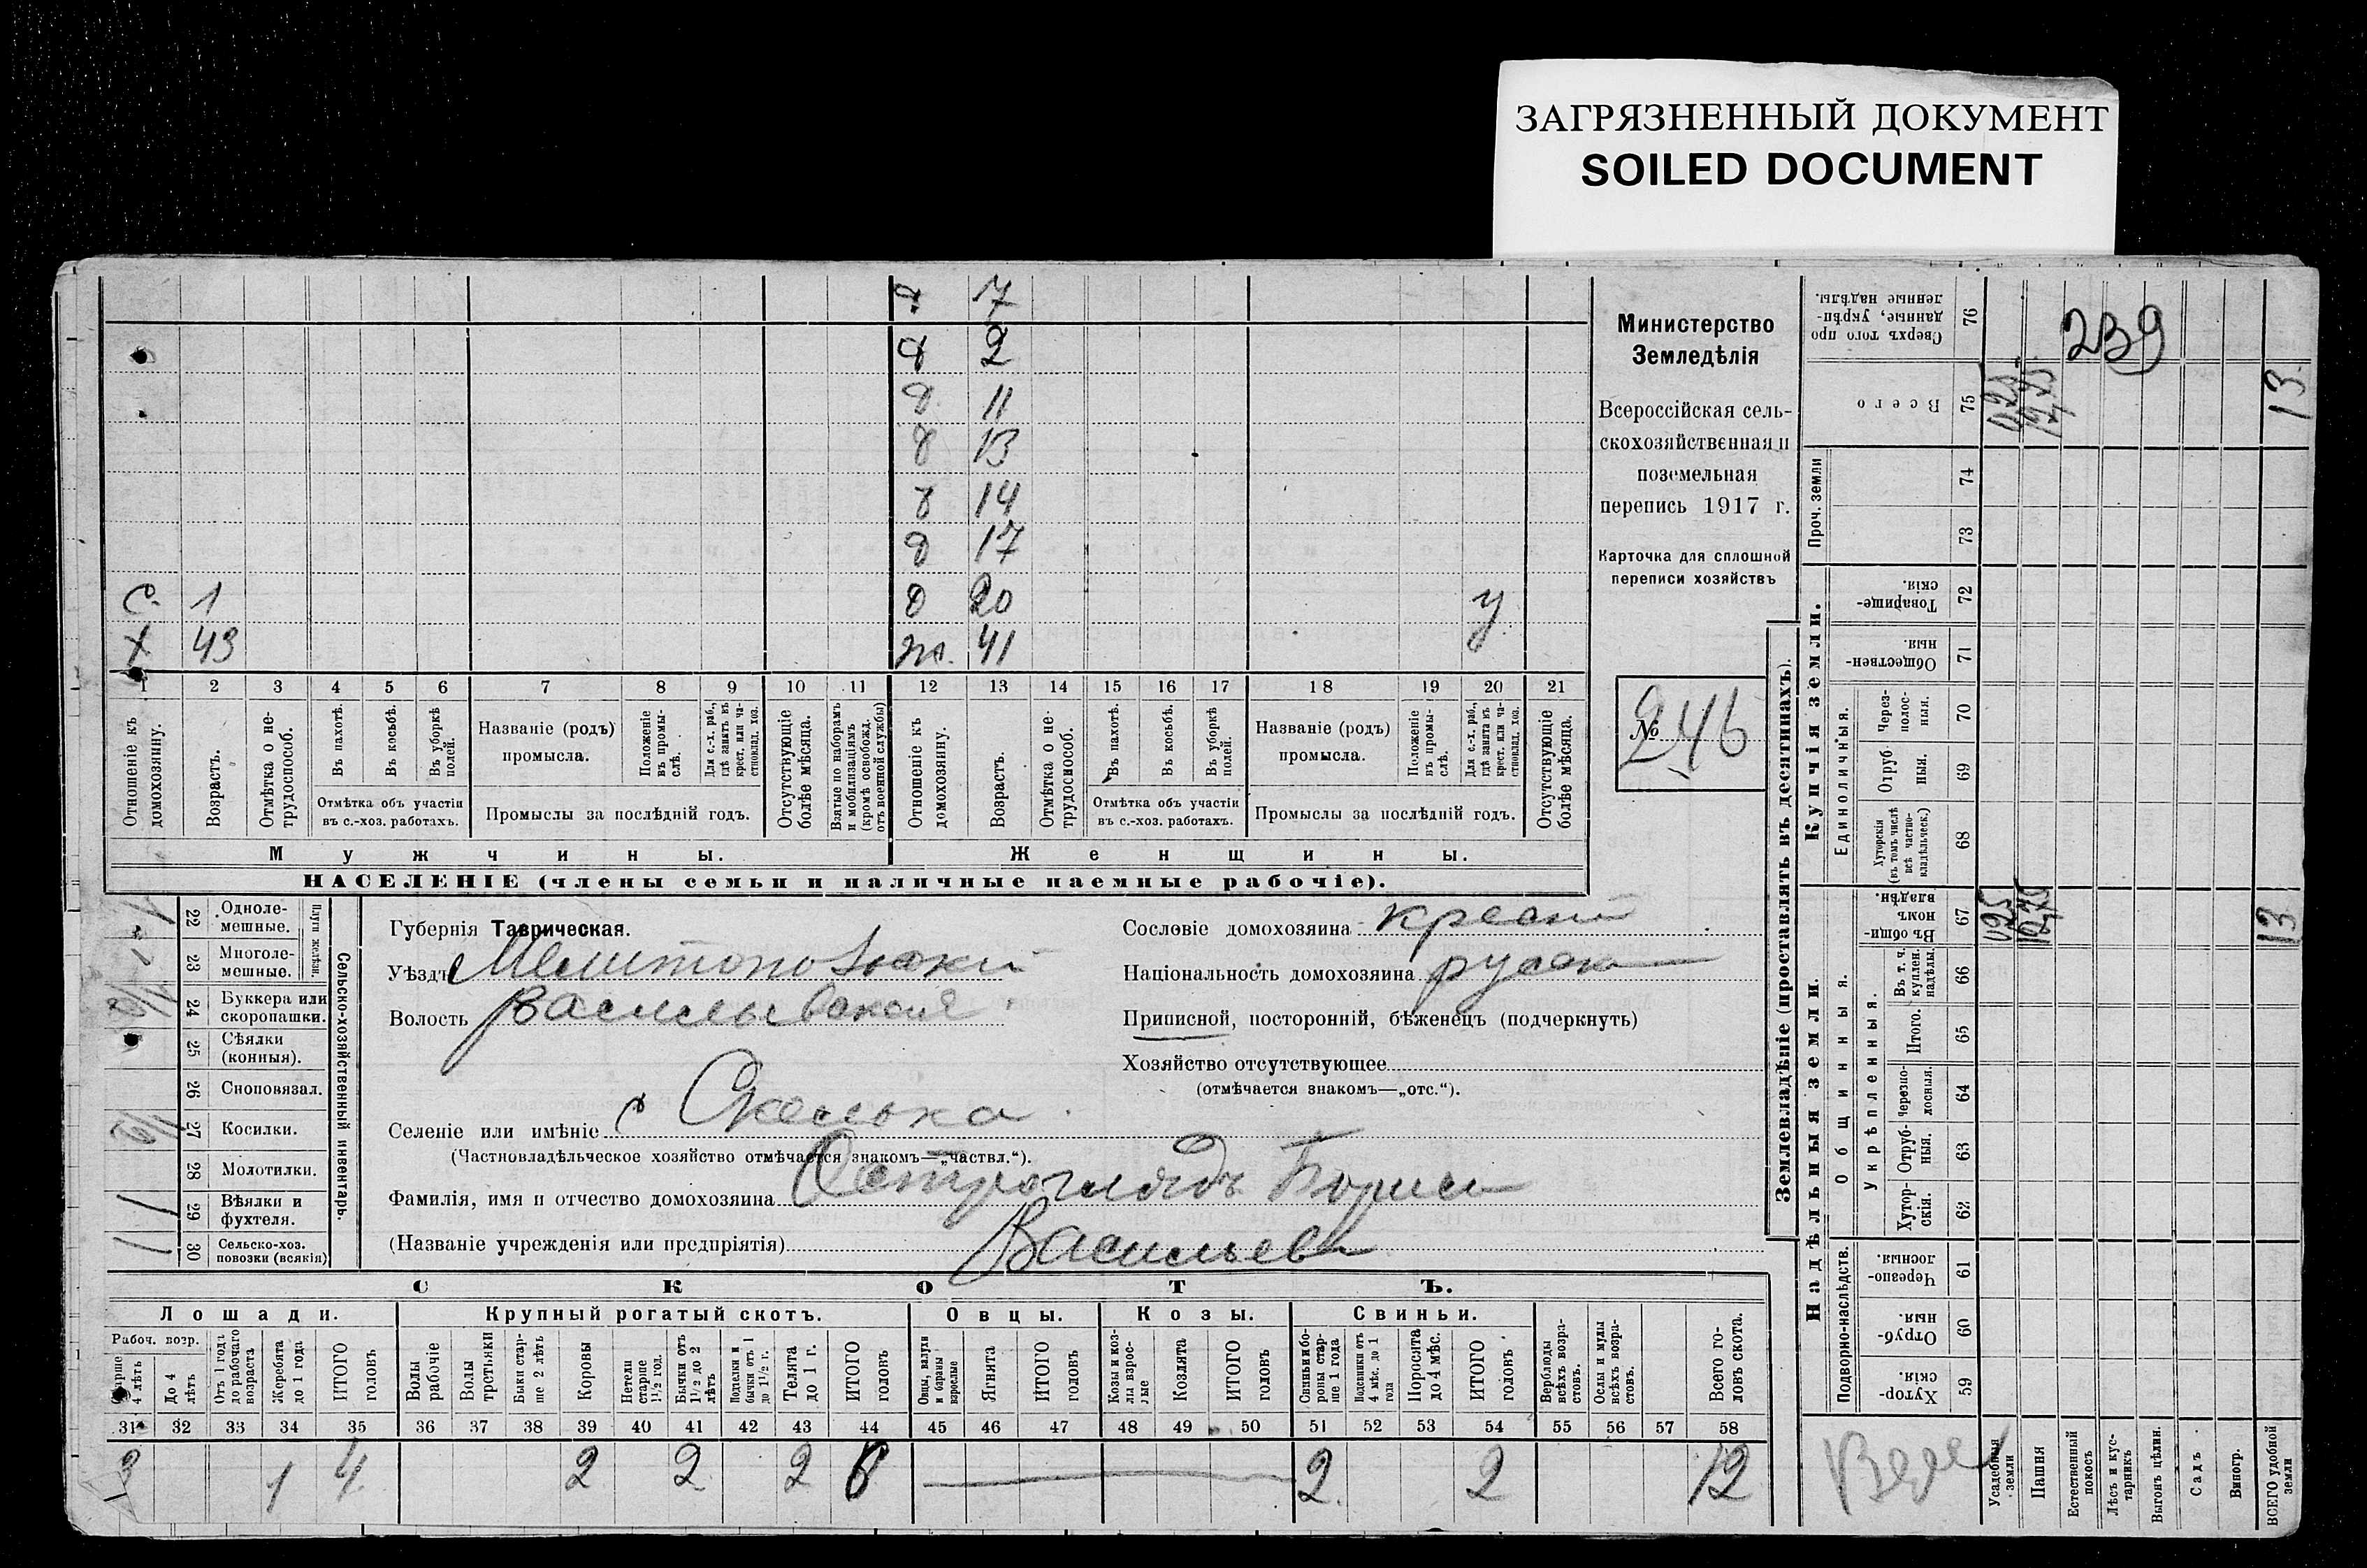 ЗАГРЯЗНЕННЫЙ ДОКУМЕНТ
SOILED DOCUMENT
д 7
д 2
д 11
д 13
д 14
д 17
с. 1 д 20 у
х 43 ж. 41
1 2 3 4 5 6 7 8 9 10 11 12 13 14 15 16 17 18 19 20 21
Отношеніе къ домохозяину.
Возрастъ.
Отмѣтка о не-трудоспособ.
Въ пахотѣ.
Въ косьбѣ.
Въ уборкѣ полей.
Отмѣтка объ участіи
въ с.-хоз. работахъ.
Названіе (родъ)
промысла.
Положеніе въ промы-слѣ.
Для с.-х. раб., гдѣ занятъ въ крест. или ча-стновлад. хоз.
Промыслы за послѣдній годъ.
Отсутствующіе болѣе мѣсяца.
Взятые по наборамъ и мобилизаціямъ (кромѣ освобожд. отъ военной службы)
Отношеніе къ домохозяину.
Возрастъ.
Отмѣтка о не-трудоспособ.
Въ пахотѣ.
Въ косьбѣ.
Въ уборкѣ полей.
Отмѣтка объ участіи
въ с.-хоз. работахъ.
Названіе (родъ)
промысла.
Положеніе въ промы-слѣ.
Для с.-х. раб., гдѣ занятъ въ крест. или ча-стновлад. хоз.
Промыслы за послѣдній годъ.
Отсутствующіе болѣе мѣсяца.
Мужчины. Женщины.
НАСЕЛЕНІЕ (члены семьи и наличные наемные рабочіе).
Министерство
Земледѣлія
Всероссійская сель-
скохозяйственная и
поземельная
перепись 1917 г.
Карточка для сплошной
переписи хозяйствъ
№ 246
22 Одноле-мешные.
23 Многоле-мешные.
Плуги желѣзн.
24 Буккера или скоропашки.
25 Сѣялки (конныя).
26 Сноповязал.
27 Косилки.
28 Молотилки.
29 Вѣялки и фухтеля.
30 Сельско-хоз. повозки (всякія)
Сельско-хозяйственный инвентарь.
Губернія Таврическая.
Уѣздъ Мелитопольскій
Волость Васильевская
Селеніе или имѣніе с Скелька
(Частновладѣльческое хозяйство отмѣчается знакомъ—„частвл.“).
Фамилія, имя и отчество домохозяина Остроглядъ Борисъ
(Названіе учрежденія или предпріятія) Васильевъ
Сословіе домохозяина крест
Національность домохозяина русск
Приписной, посторонній, бѣженецъ (подчеркнуть)
Хозяйство отсутствующее
(отмѣчается знакомъ—„отс.“).
СКОТЪ.
Лошади. Крупный рогатый скотъ. Овцы. Козы. Свиньи.
Рабоч. возр.
Старше 4 лѣтъ
До 4 лѣтъ
Отъ 1 года до рабочаго возраста
Жеребята до 1 года
ИТОГО головъ
Волы рабочіе
Волы третьяки
Быки стар-ше 2 лѣтъ
Коровы
Нетели старше 1½ год.
Бычки отъ 1½ до 2 лѣтъ
Подтелки и бычки отъ 1 до 1½ г.
Телята до 1 г.
ИТОГО головъ
Овцы, валухи и бараны взрослые
Ягнята
ИТОГО головъ
Козы и коз-лы взрос-лые
Козлята
ИТОГО головъ
Свиньи и бо-ровы стар-ше 1 года
Подсвинки отъ 4 мѣс. до 1 года
Поросята до 4 мѣс.
ИТОГО головъ
Верблюды всѣхъ возра-стовъ.
Ослы и мулы всѣхъ возра-стовъ.
Всего го-ловъ скота.
31 32 33 34 35 36 37 38 39 40 41 42 43 44 45 46 47 48 49 50 51 52 53 54 55 56 57 58
3 1 4 2 2 2 6 2 2 12
Землевладѣніе (проставлять въ десятинахъ).
Надѣльныя земли. Купчія земли.
Сверхъ того про данные, укрѣп-ленные надѣлы. 76
239
Всего 75 0,25 12,75 13
Проч. земли 74
73
Товарище-скія. 72
Обществен-ныя. 71
Единоличныя.
Через-полос-ныя. 70
Отруб ныя. 69
Хуторскія (въ томъ числѣ всѣ частно-владѣльческ.) 68
Общинныя.
Въ общи-номъ владѣн. 67 0,25 12,75 13
Укрѣпленныя.
Въ т. ч. куплен. надѣлы 66
Итого. 65
Черезпо-лосныя. 64
Отруб-ныя. 63
Хутор-скія. 62
Подворно-наслѣдств.
Черезпо-лосныя 61
Отруб-ныя. 60
Хутор-скія. 59
Усадебныя земли
Пашня
Естественный покосъ
Лѣсъ и кус-тарникъ
Выгонъ цѣлин.
Садъ
Виногр.
ВСЕГО удобной земли